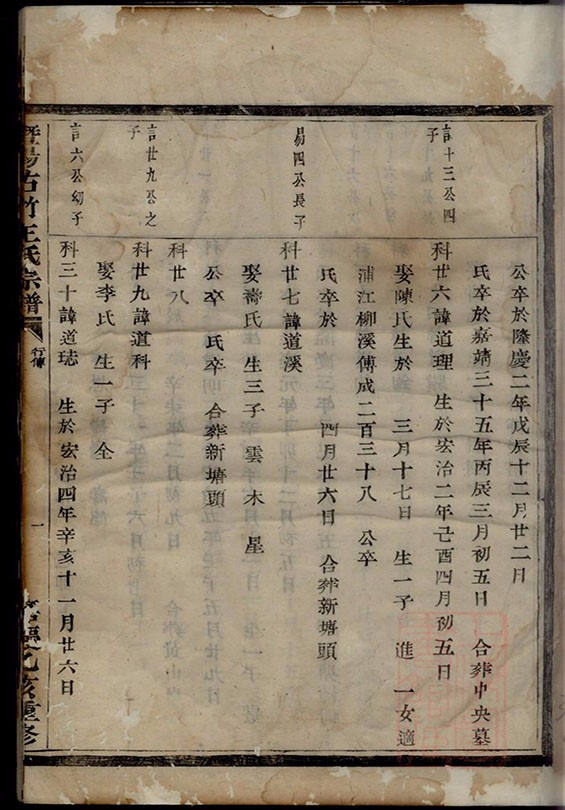 公卒於隆慶二年戊辰十二月廿二月
氏卒於嘉靖三十五年丙辰三月初五日 合葬中央墓
言十三公四
子
科廿六諱道理 生於宏治二年己酉四月初五日
娶陳氏生於 三月十七日 生一子 進 一女適
浦江柳溪傅成二百三十八 公卒
氏卒於 四月廿六日 合葬新塘頭
易四公長子
科廿七諱道溪
娶壽氏生三子 雲 木 星
公卒 氏卒 合葬新塘頭
科廿八
言廿九公之
子
科廿九諱道科
娶李氏 生一子 全
言六公幼子
科三十諱道誌 生於宏治四年辛亥十一月廿六日
暨陽古竹王氏宗譜
行傳
一
乙亥重修